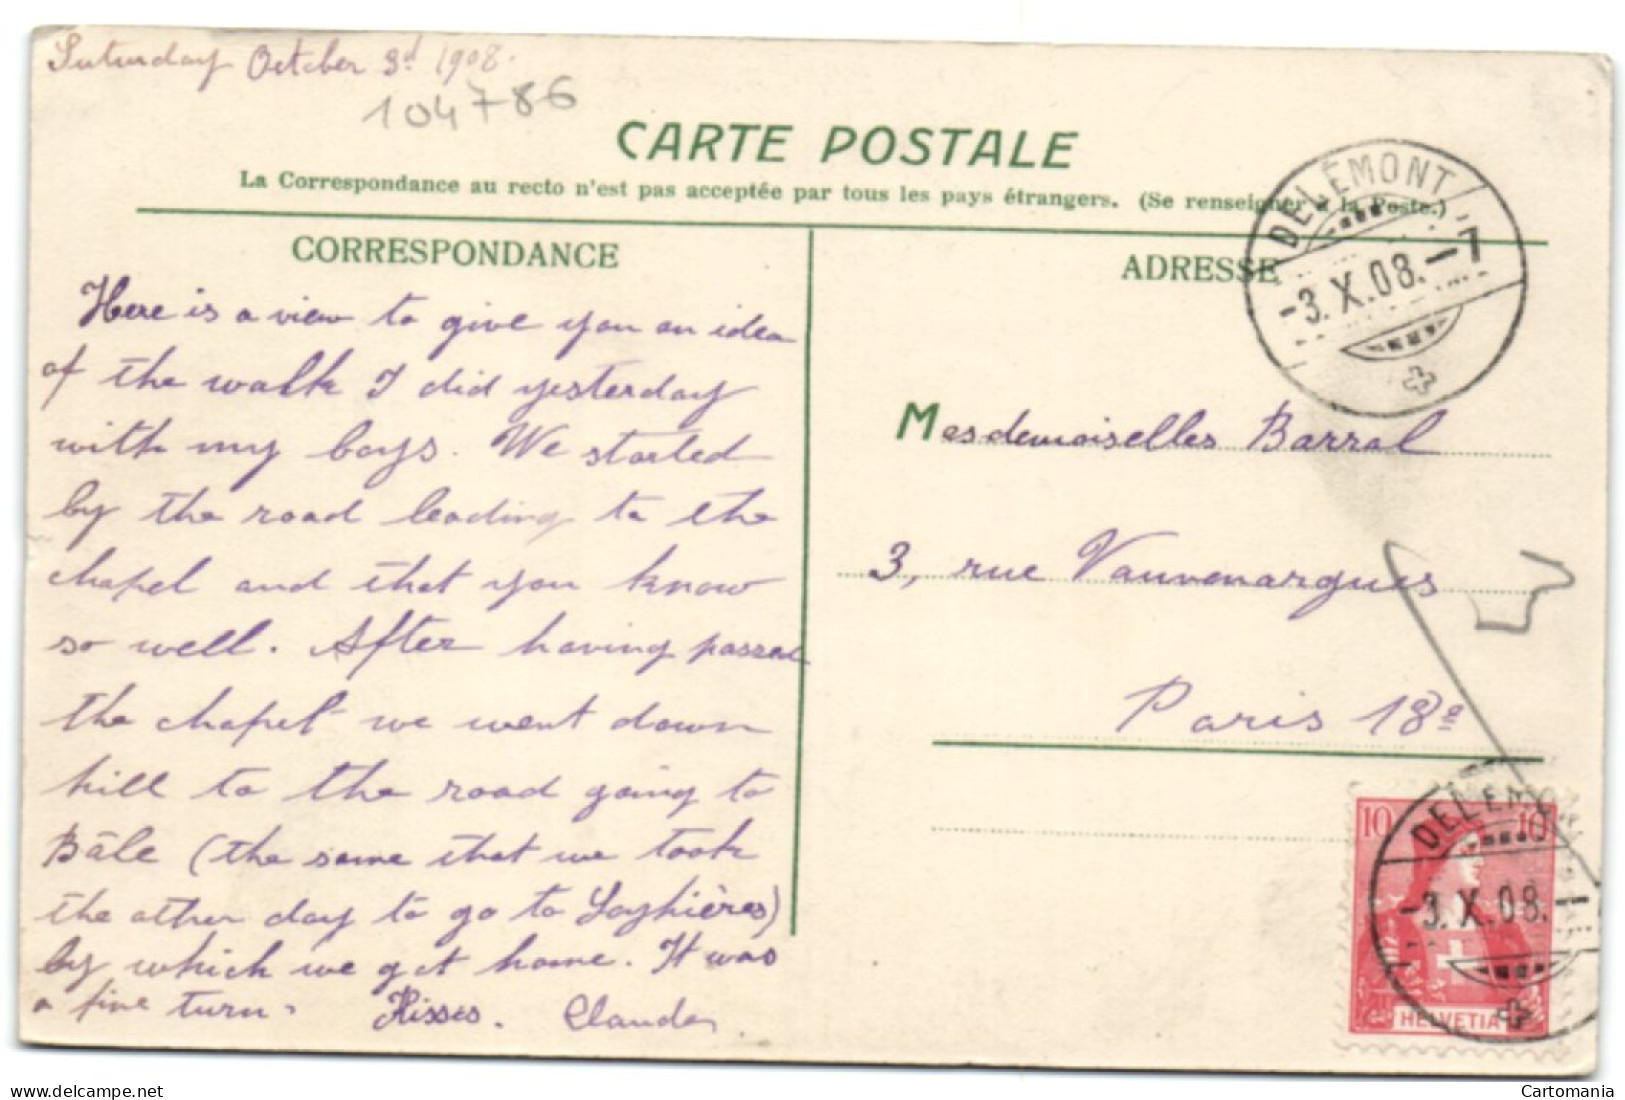 Saturday October 3d 1908.
104786
CARTE POSTALE
La Correspondance au recto n'est pas acceptée par tous les pays étrangers. (Se renseigner à la Poste.)
CORRESPONDANCE
Here is a view to give you an idea
of the walk I did yesterday
with my boys. We started
by the road leading to the
chapel and that you know
so well. After having passed
the chapel we went down
hill to the road going to
Bâle (the same that we took
the other day to go to Soyhières)
by which we got home. It was
a fine turn. Kisses. Claude.
ADRESSE
DELÉMONT
-3.X.08.-7
Mesdemoiselles Barral
3, rue Vauvenargues
Paris 18e
10 10
HELVETIA
DELÉMONT
-3.X.08.-
delcampe.net
Cartomania